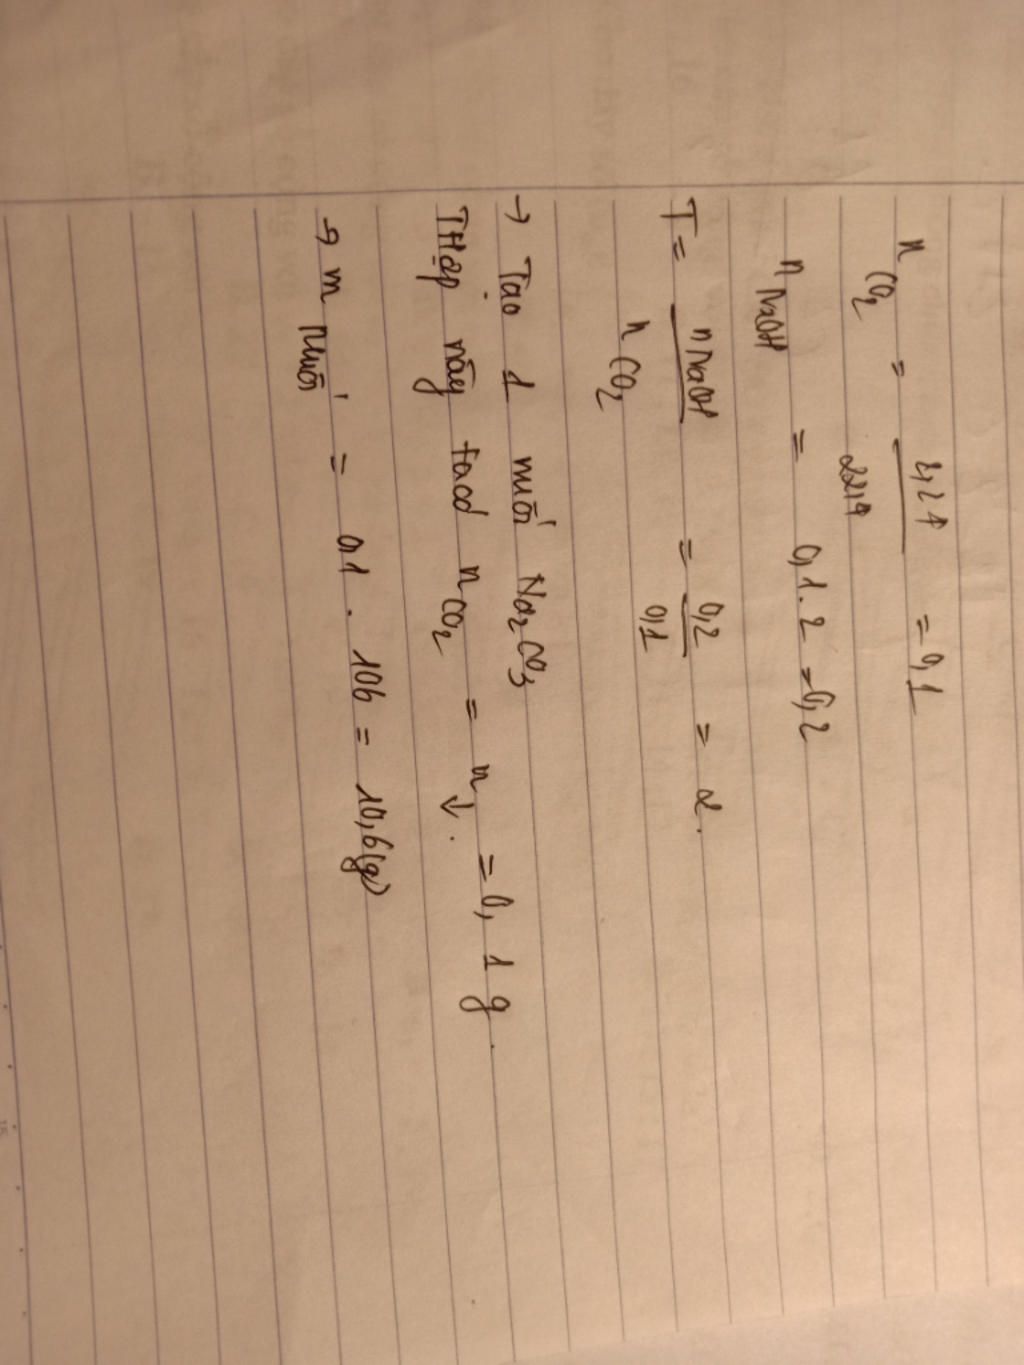 n CO₂ = 2,24 / 22,4 = 0,1
n NaOH = 0,1.2 = 0,2
T = n NaOH / n CO₂ = 0,2 / 0,1 = 2.
→ Tạo 1 muối Na₂CO₃
THợp này ta có n CO₂ = n↓. = 0,1 g.
→ m muối = 0,1 . 106 = 10,6(g)